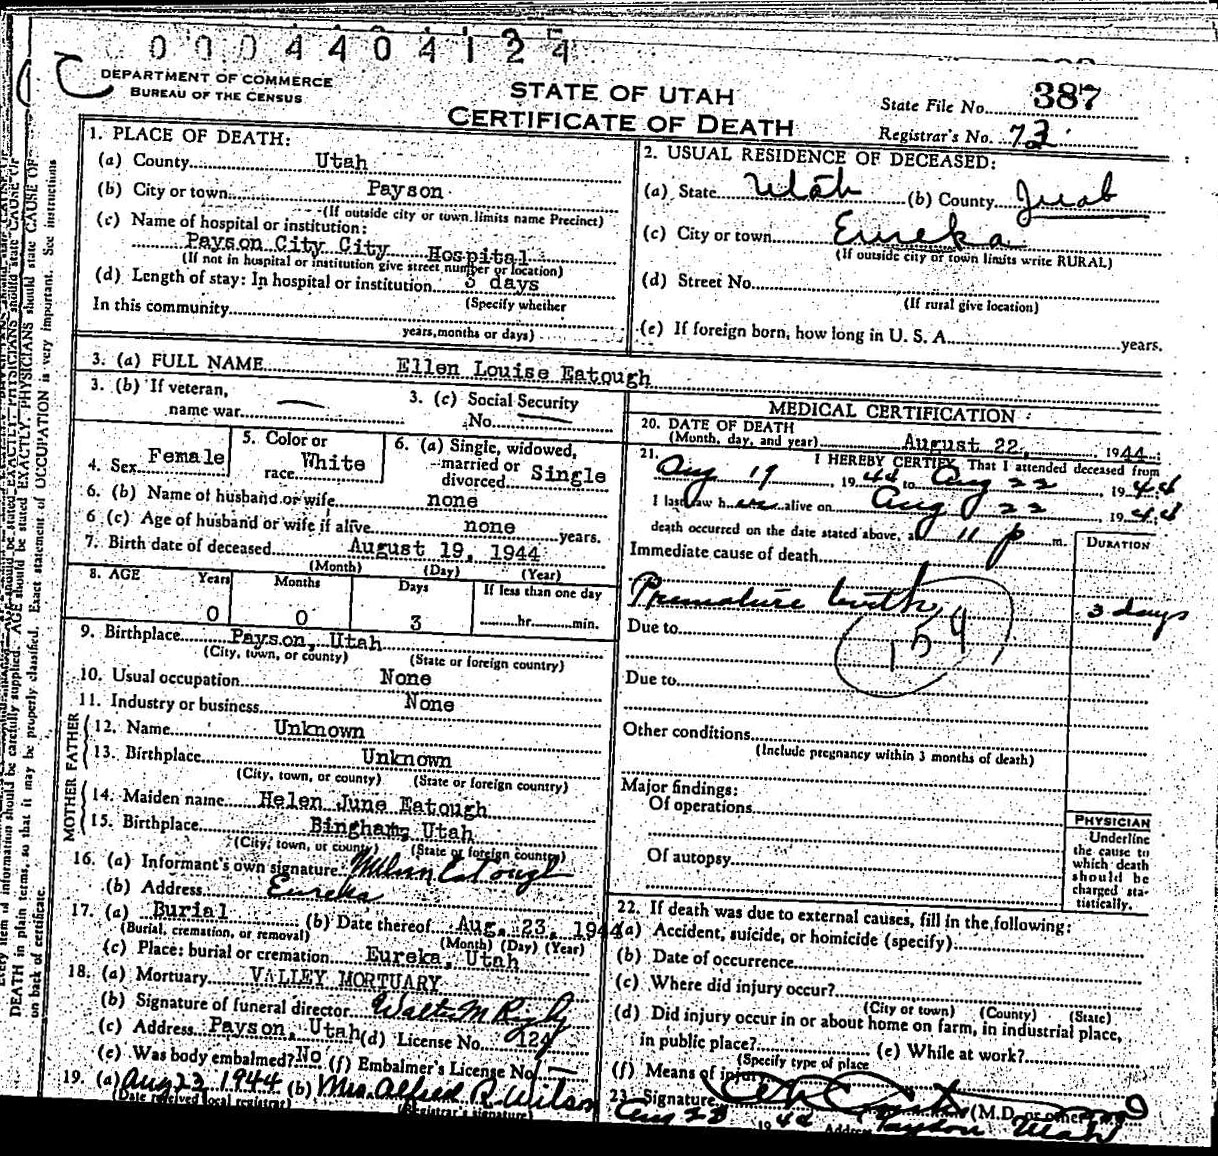 0 0 0 4 4 0 4 1 2 4
DEPARTMENT OF COMMERCE
BUREAU OF THE CENSUS
STATE OF UTAH
CERTIFICATE OF DEATH
State File No. 387
Registrar's No. 73
1. PLACE OF DEATH:
(a) County Utah
(b) City or town Payson
(If outside city or town limits name Precinct)
(c) Name of hospital or institution:
Payson City City Hospital
(If not in hospital or institution give street number or location)
(d) Length of stay: In hospital or institution 3 days
(Specify whether
In this community
years, months or days)
2. USUAL RESIDENCE OF DECEASED:
(a) State Utah (b) County Juab
(c) City or town Eureka
(If outside city or town limits write RURAL)
(d) Street No.
(If rural give location)
(e) If foreign born, how long in U. S. A. years.
3. (a) FULL NAME Ellen Louise Eatough
3. (b) If veteran,
name war
3. (c) Social Security
No.
4. Sex Female
5. Color or
race White
6. (a) Single, widowed,
married or
divorced Single
6. (b) Name of husband or wife none
6 (c) Age of husband or wife if alive none years.
7. Birth date of deceased August 19, 1944
(Month) (Day) (Year)
8. AGE Years Months Days If less than one day
0 0 3 hr. min.
9. Birthplace Payson, Utah
(City, town, or county) (State or foreign country)
10. Usual occupation None
11. Industry or business None
FATHER
12. Name Unknown
13. Birthplace Unknown
(City, town, or county) (State or foreign country)
MOTHER
14. Maiden name Helen June Eatough
15. Birthplace Bingham, Utah
(City, town, or county) (State or foreign country)
16. (a) Informant's own signature Eatough
(b) Address Eureka
17. (a) Burial (b) Date thereof Aug. 23, 1944
(Burial, cremation, or removal) (Month) (Day) (Year)
(c) Place: burial or cremation Eureka, Utah
18. (a) Mortuary VALLEY MORTUARY
(b) Signature of funeral director Walter M Rigby
(c) Address Payson, Utah (d) License No. 124
(e) Was body embalmed? No (f) Embalmer's License No.
19. (a) Aug 23 1944 (b) Mrs. Alfred R. Wilson
(Date received local registrar) (Registrar's signature)
MEDICAL CERTIFICATION
20. DATE OF DEATH
(Month, day, and year) August 22, 1944
21. I HEREBY CERTIFY, That I attended deceased from
Aug 19, 1944 to Aug 22 1944
I last saw her alive on Aug 22 1944
death occurred on the date stated above, at 11 p m.
Immediate cause of death
DURATION
Premature birth 3 days
154
Due to
Due to
Other conditions
(Include pregnancy within 3 months of death)
Major findings:
Of operations
Of autopsy
PHYSICIAN
Underline
the cause to
which death
should be
charged sta-
tistically.
22. If death was due to external causes, fill in the following:
(a) Accident, suicide, or homicide (specify)
(b) Date of occurrence
(c) Where did injury occur?
(City or town) (County) (State)
(d) Did injury occur in or about home on farm, in industrial place,
in public place? (e) While at work?
(Specify type of place
(f) Means of injury
23. Signature (M.D. or other)
Aug 23 1944 Address Payson Utah
information should be carefully supplied. AGE should be stated EXACTLY. PHYSICIANS should state CAUSE OF
DEATH in plain terms, so that it may be properly classified. Exact statement of OCCUPATION is very important. See instructions
on back of certificate.